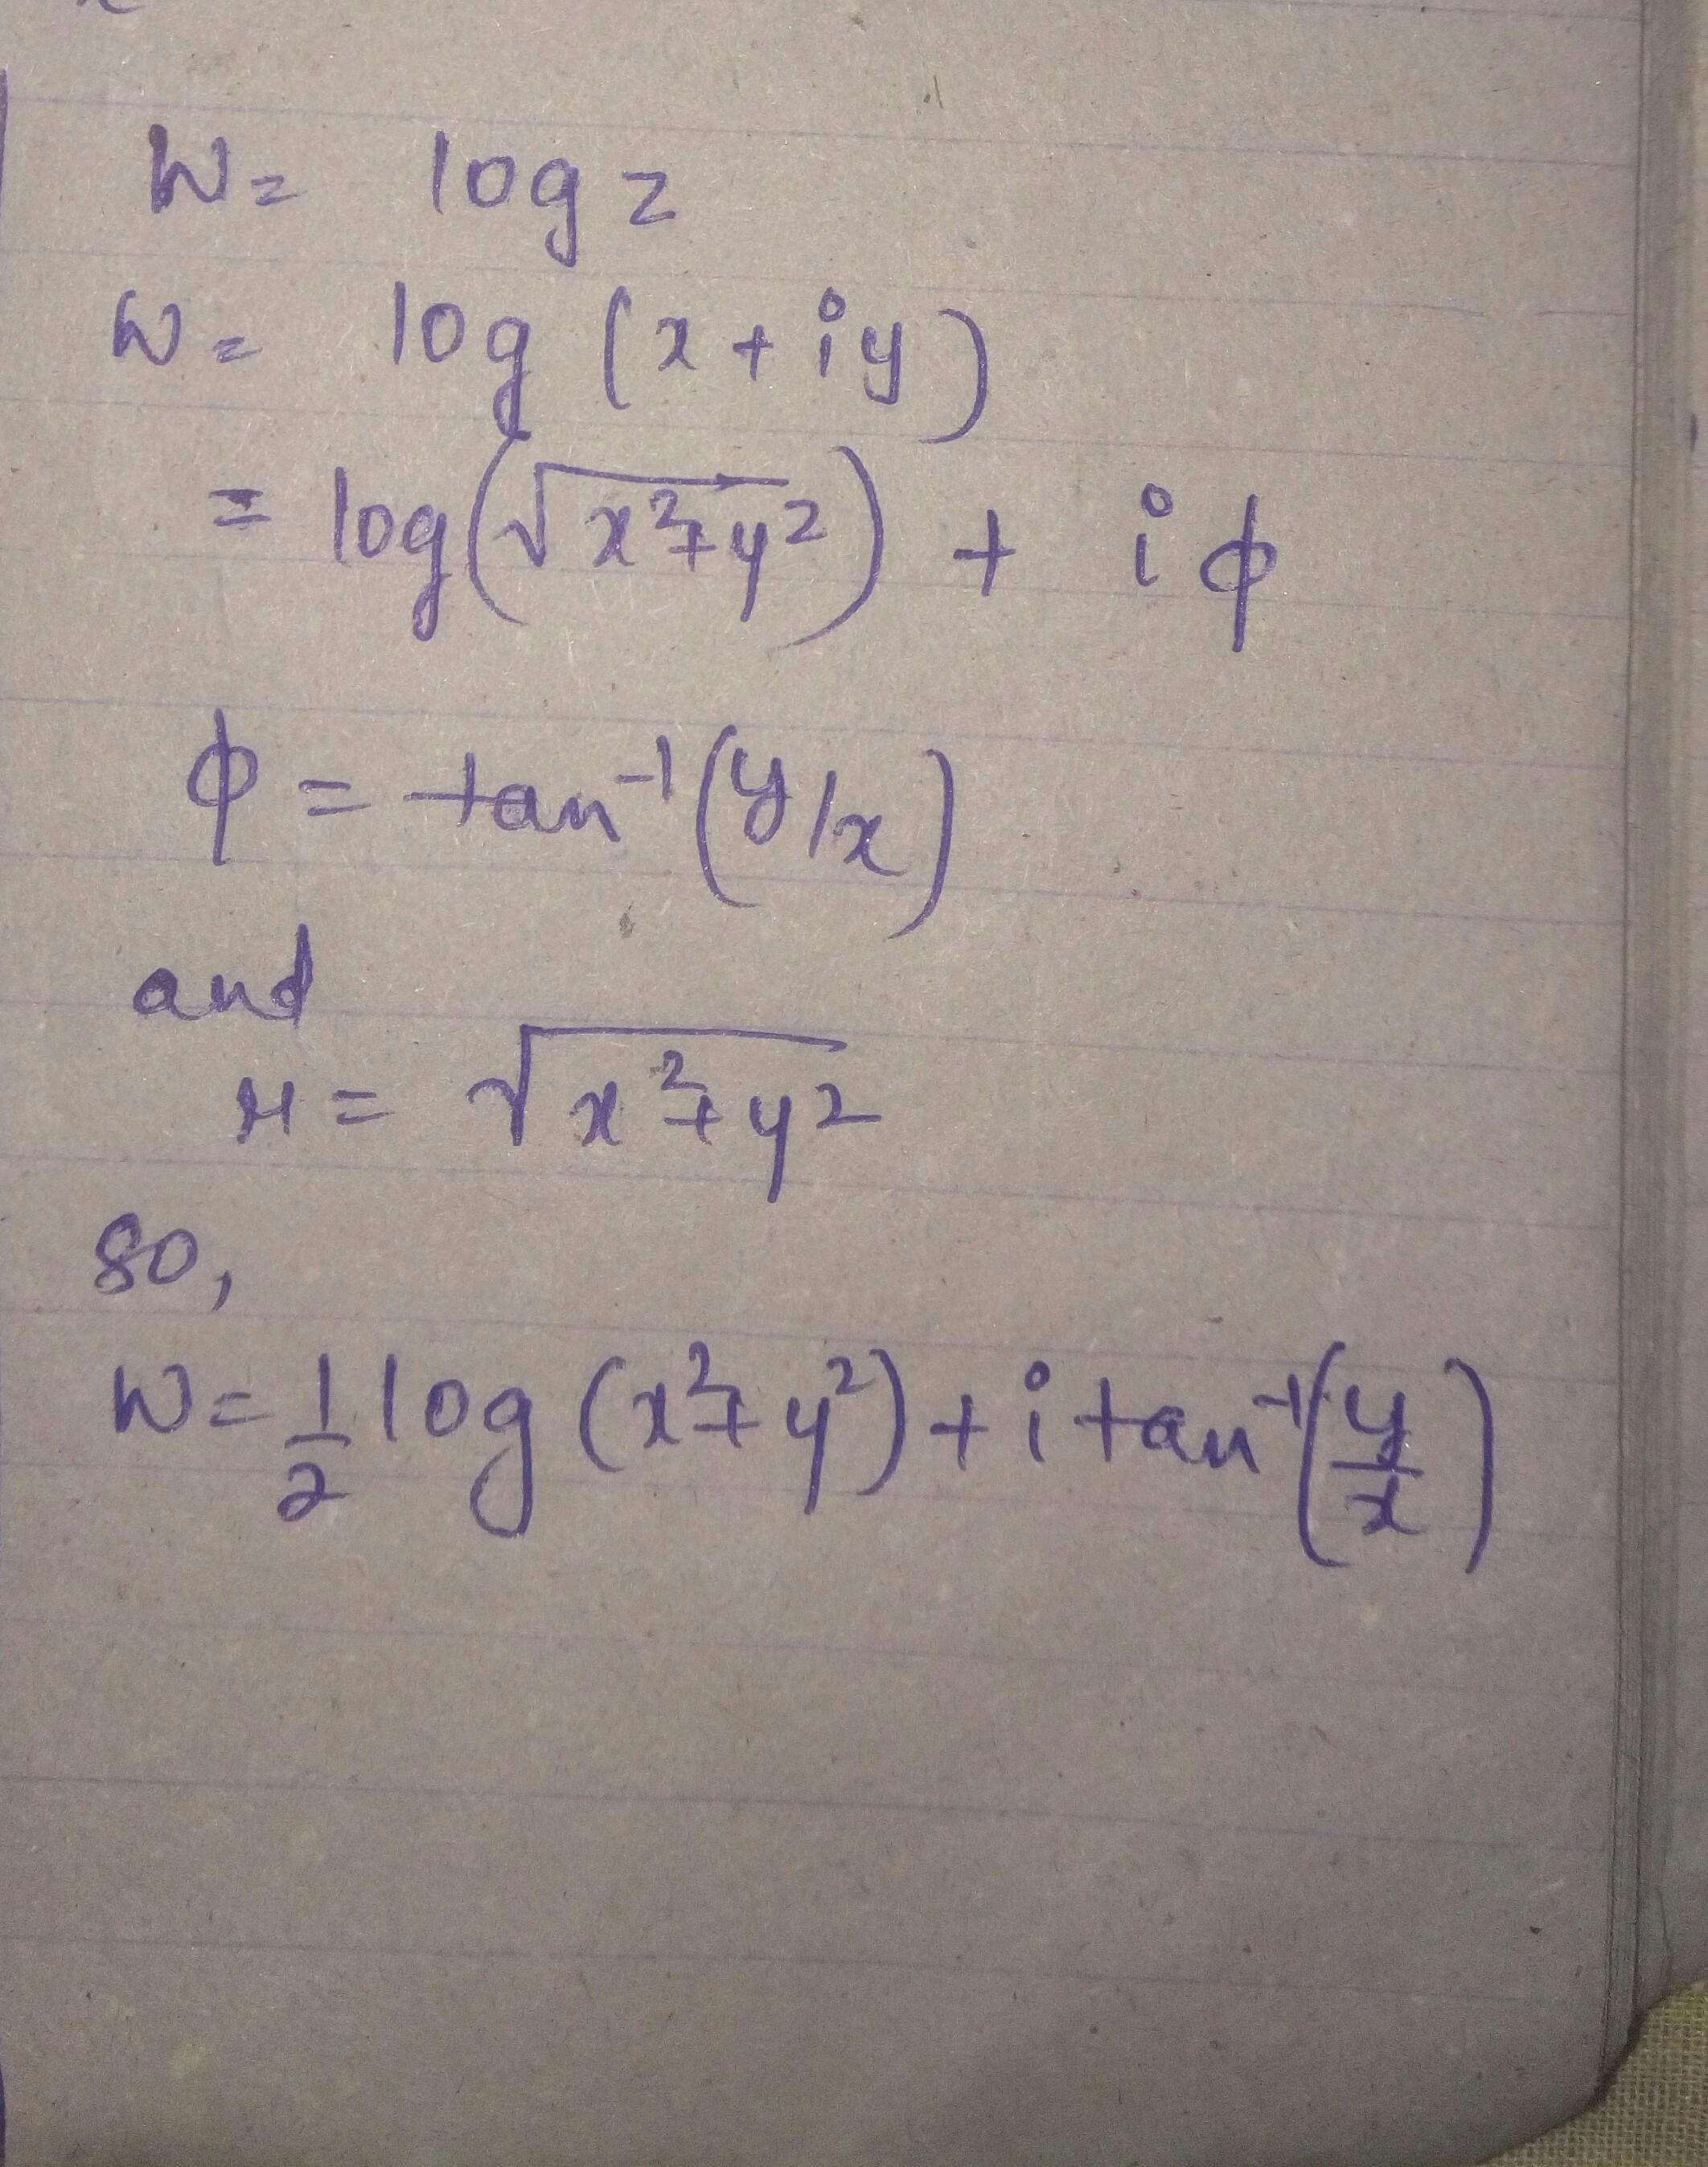 W = log z
W = log (x + iy)
= log(√x²+y²) + iϕ
ϕ = tan⁻¹(y/x)
and
r = √x²+y²
so,
W = 1/2 log (x²+y²) + i tan⁻¹(y/x)